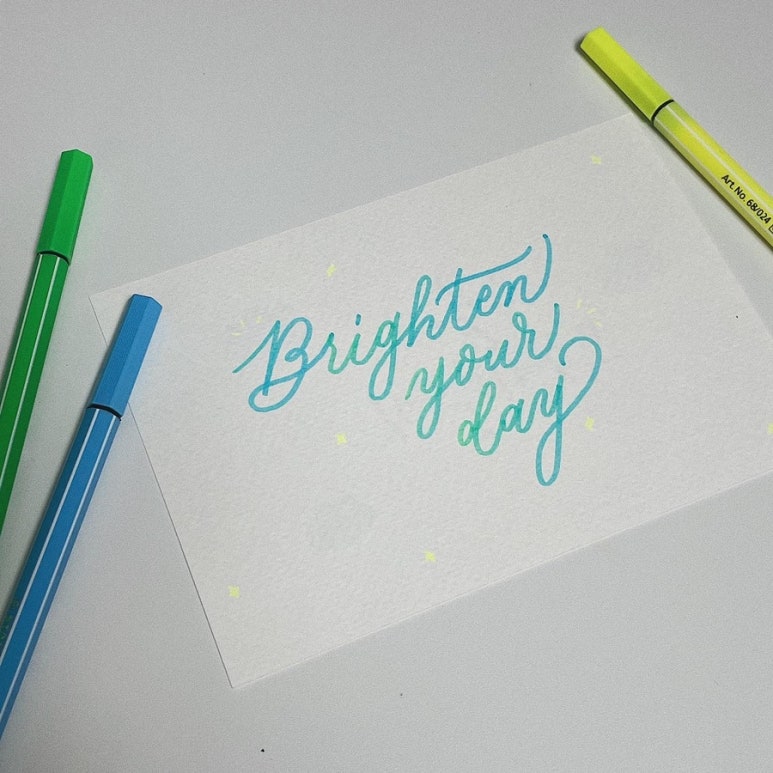 Brighten
your
day
Art. No. 68/024